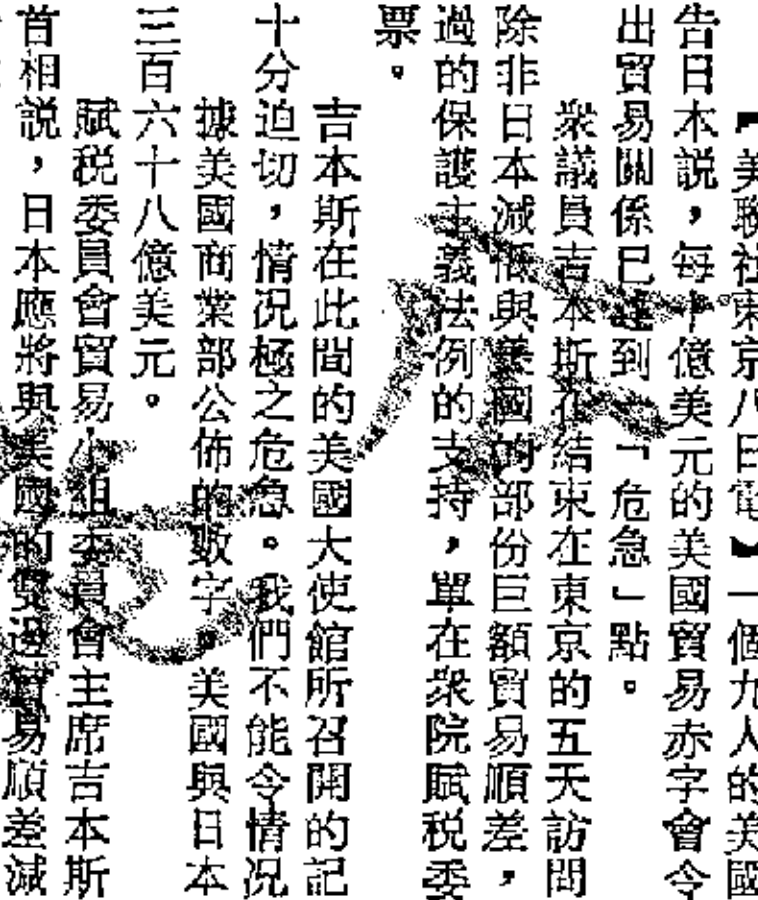 【美聯社東京八日電】一個九人的美國
告日本説，每十億美元的美國貿易赤字會令
出貿易關係已達到「危急」點。
衆議員吉本斯在結束在東京的五天訪問
除非日本減低與美國的部份巨額貿易順差，
過的保護主義法例的支持，單在衆院賦税委
票。
吉本斯在此間的美國大使館所召開的記
十分迫切，情況極之危急。我們不能令情況
據美國商業部公佈的數字，美國與日本
三百六十八億美元。
賦税委員會貿易小組委員會主席吉本斯
首相説，日本應將與美國的雙邊貿易順差減